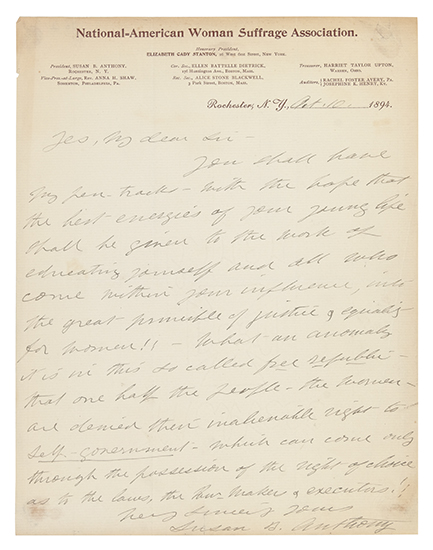 National-American Woman Suffrage Association.
Honorary President,
ELIZABETH CADY STANTON, 26 West 61st Street, New York.
President, SUSAN B. ANTHONY,
ROCHESTER, N. Y.
Vice-President-at-Large, REV. ANNA H. SHAW,
SOMERTON, PHILADELPHIA, PA.
Cor. Sec., ELLEN BATTELLE DIETRICK,
Huntington Ave., BOSTON, MASS.
Rec. Sec., ALICE STONE BLACKWELL,
3 Park Street, BOSTON, MASS.
Treasurer, HARRIET TAYLOR UPTON,
WARREN, OHIO.
Auditors, { RACHEL FOSTER AVERY, PA.
JOSEPHINE K. HENRY, KY.
Rochester, N. Y., Oct. 10 1894.
Yes, My dear Sir -
You shall have
My pen-tracks - with the hope that
the best energies of your young life
shall be given to the work of
educating yourself and all who
come within your influence, into
the great principle of justice & equality
for women!! - What an anomaly
it is in this so called free republic -
that one half the people - the women -
are denied their inalienable right to
self-government - which can come only
through the possession of the right of choice
as to the laws, the law makers & executors!!
Very Sincerely Yours
Susan B. Anthony